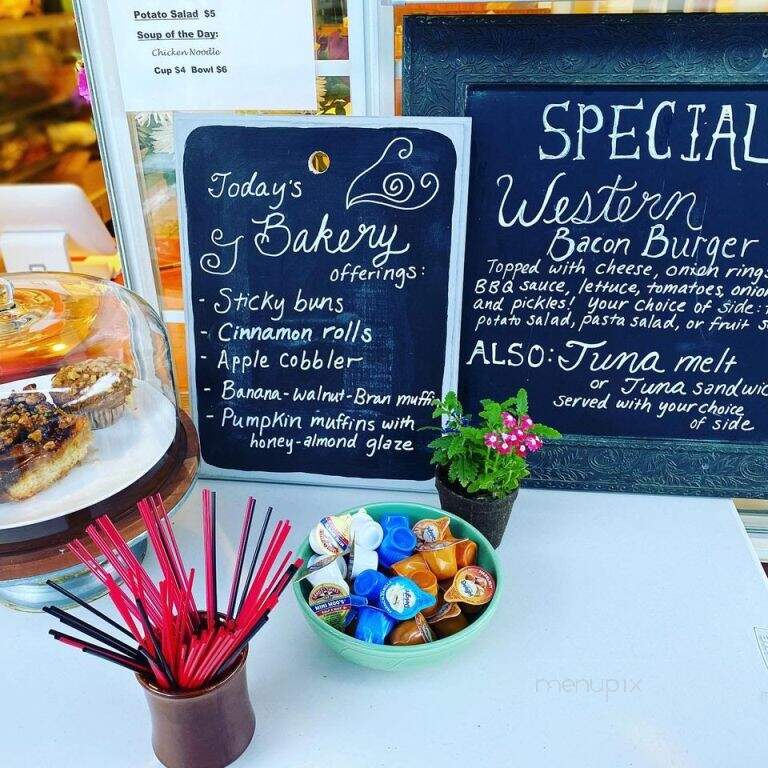 Potato Salad $5
Soup of the Day:
Chicken Noodle
Cup $4 Bowl $6
Today's
Bakery
offerings:
- Sticky buns
- Cinnamon rolls
- Apple cobbler
- Banana-walnut-Bran muffin
- Pumpkin muffins with
honey-almond glaze
SPECIAL
Western
Bacon Burger
Topped with cheese, onion rings
BBQ sauce, lettuce, tomatoes, onion
and pickles! Your choice of side:
potato salad, pasta salad, or fruit
ALSO: Tuna melt
or Tuna sandwic
served with your choice
of side
menupix